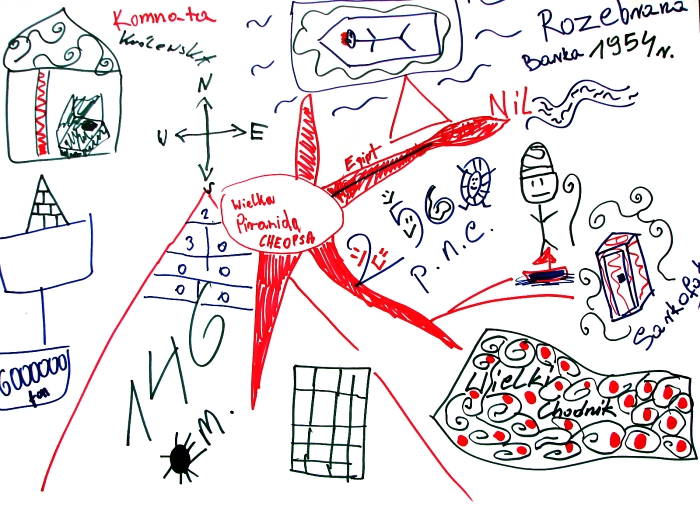 Komnata
Królewska
Rozebrana
Barka 1954r.
N
W E
S
NiL
Egipt
Wielka
Piramida
CHEOPSA
2560
p.n.e.
2
3 0
0 0
0 0
146
M.
6000000
ton
Sarkofag
Wielki
Chodnik